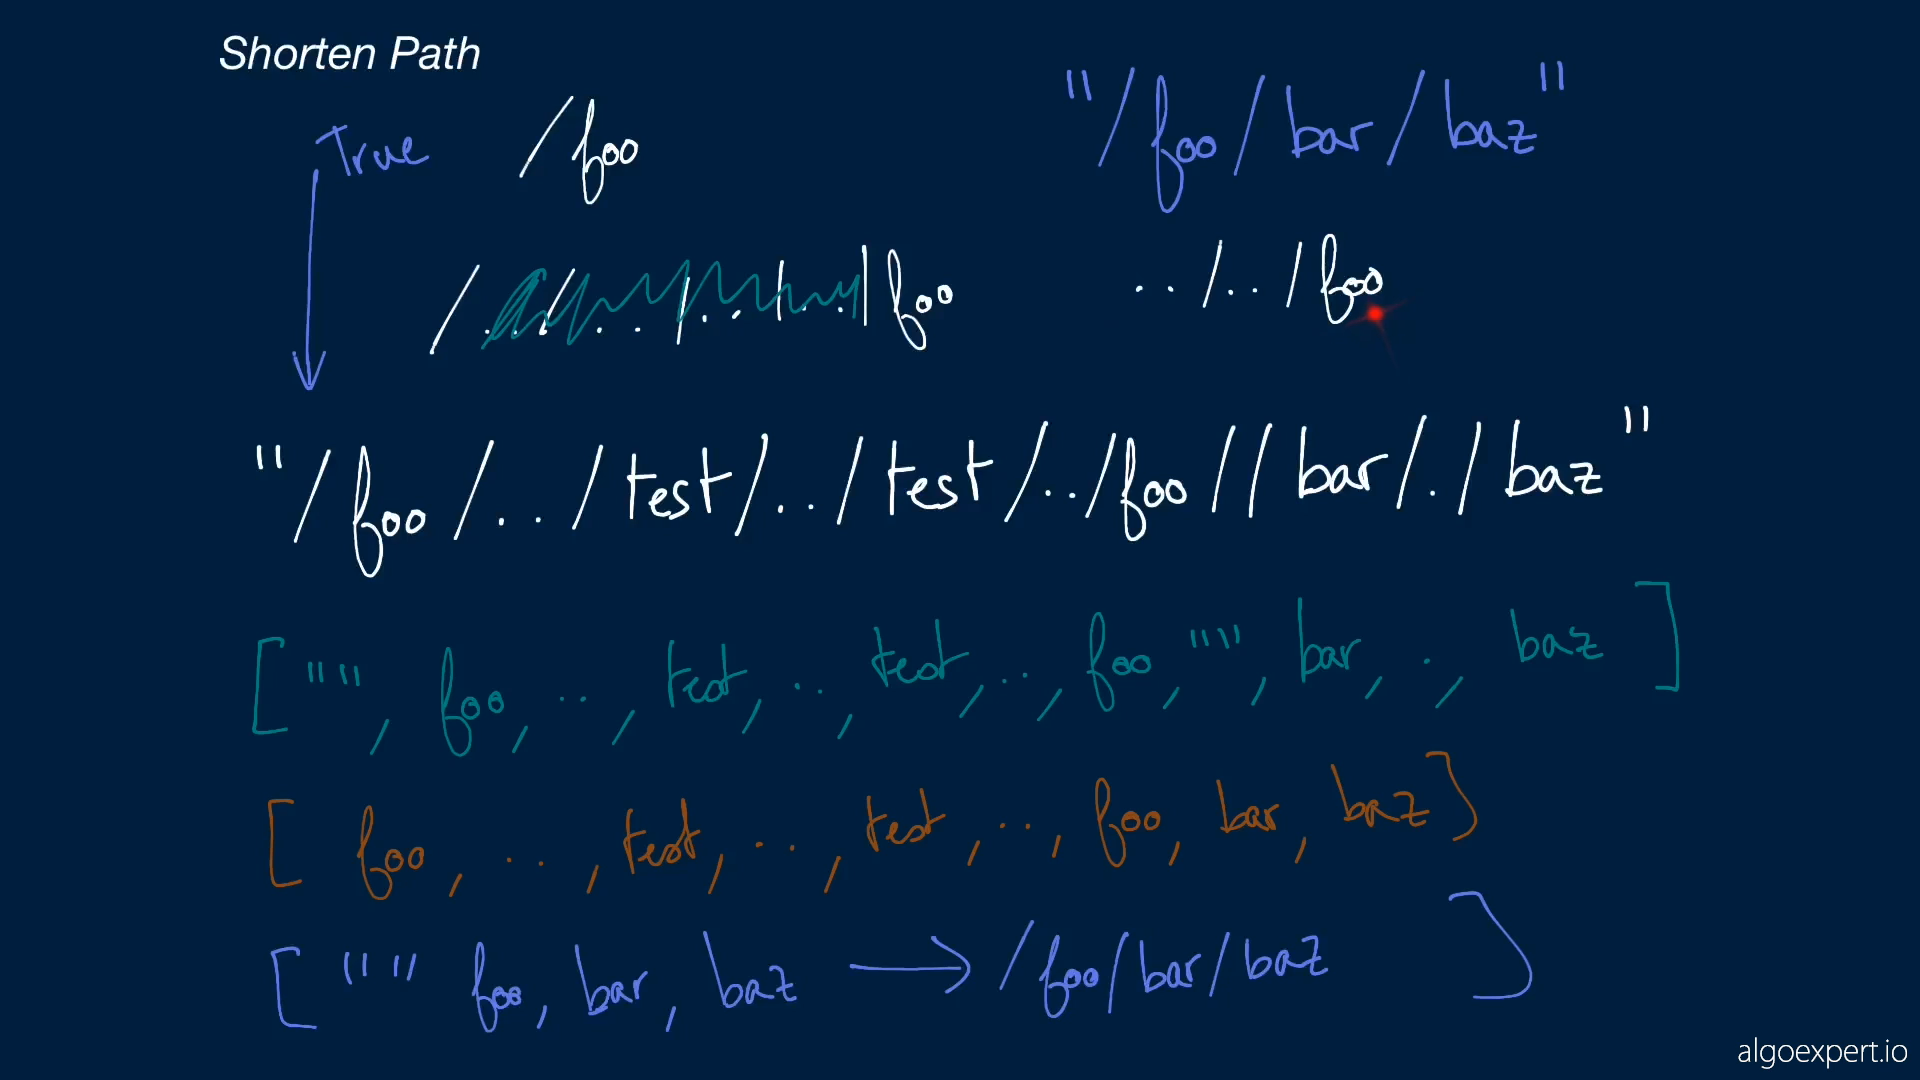 Shorten Path
True /foo "/foo/bar/baz"
/../../../../foo ../../foo
"/foo/../test/../test/../foo//bar/./baz"
["", foo, .., test, .., test, .., foo, "", bar, ., baz]
[foo, .., test, .., test, .., foo, bar, baz]
["" foo, bar, baz → /foo/bar/baz ]
algoexpert.io